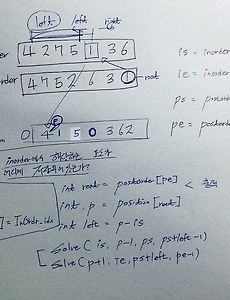 left left right
er 4 2 7 5 1 3 6 is = inorder
order 4 7 5 2 6 3 1 → root ie = inorder
ps = postorde
n 0 4 1 5 0 3 6 2 pe = postorde
inorder에서 해당하는 요소가
어디에
int root = postorder[pe] <
int p = position[root]
] = InOrdr_idx int left = p-is
solve(is, p-1, ps, ps+left-1)
solve(p+1, ie, ps+left, pe-1)